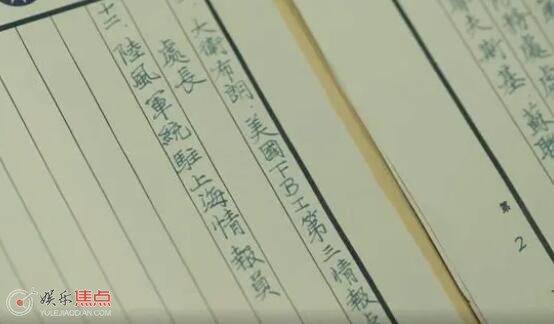 夫斯基 蘇聯
第 2
大衛布朗.美國FBI第三情報
處長
十二.陸風軍統駐上海情報員
娱乐焦点
YULEJIAODIAN.COM